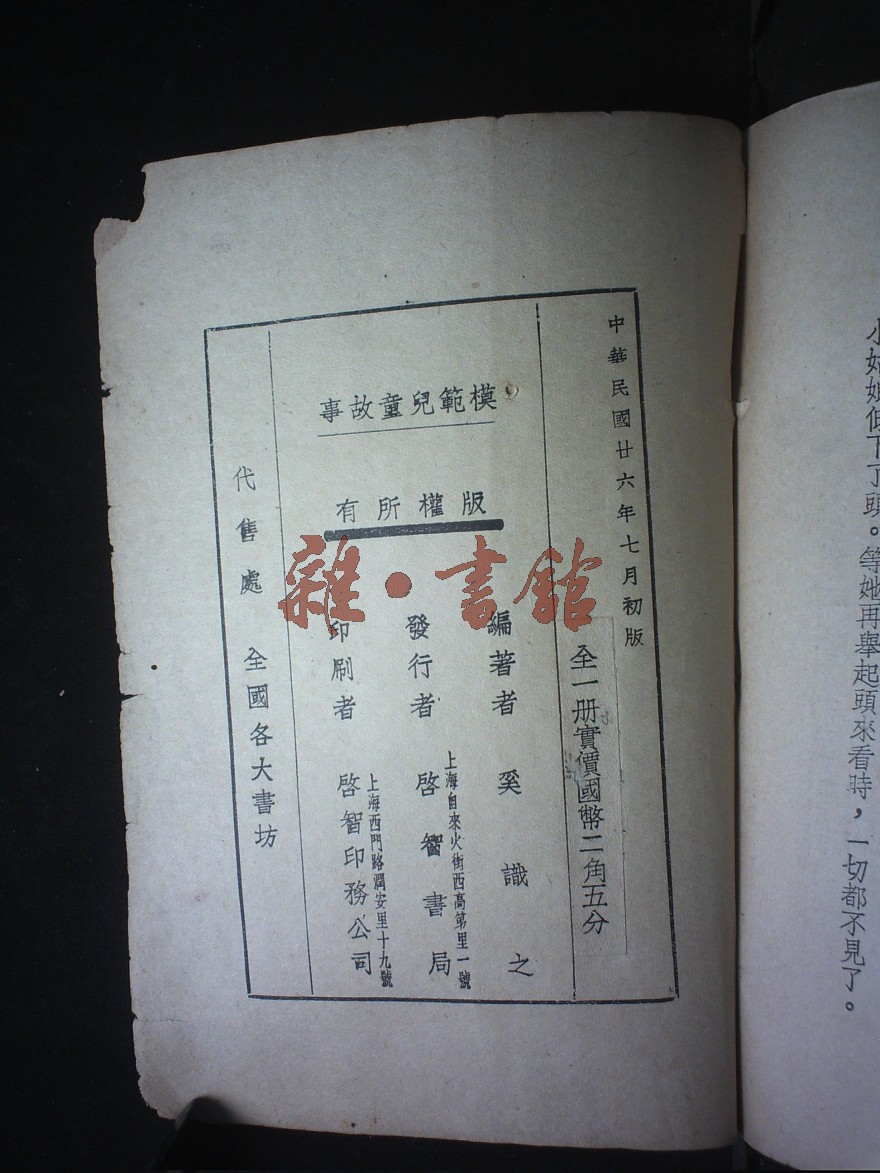 小姑娘倒下了頭。等她再舉起頭來看時，一切都不見了。
中華民國廿六年七月初版
全一册實價國幣二角五分
模範兒童故事
版權所有
編著者 奚識之
發行者 啓智書局
上海自來火街西高第里一號
印刷者 啓智印務公司
上海西門路潤安里十九號
代售處 全國各大書坊
雜·書館